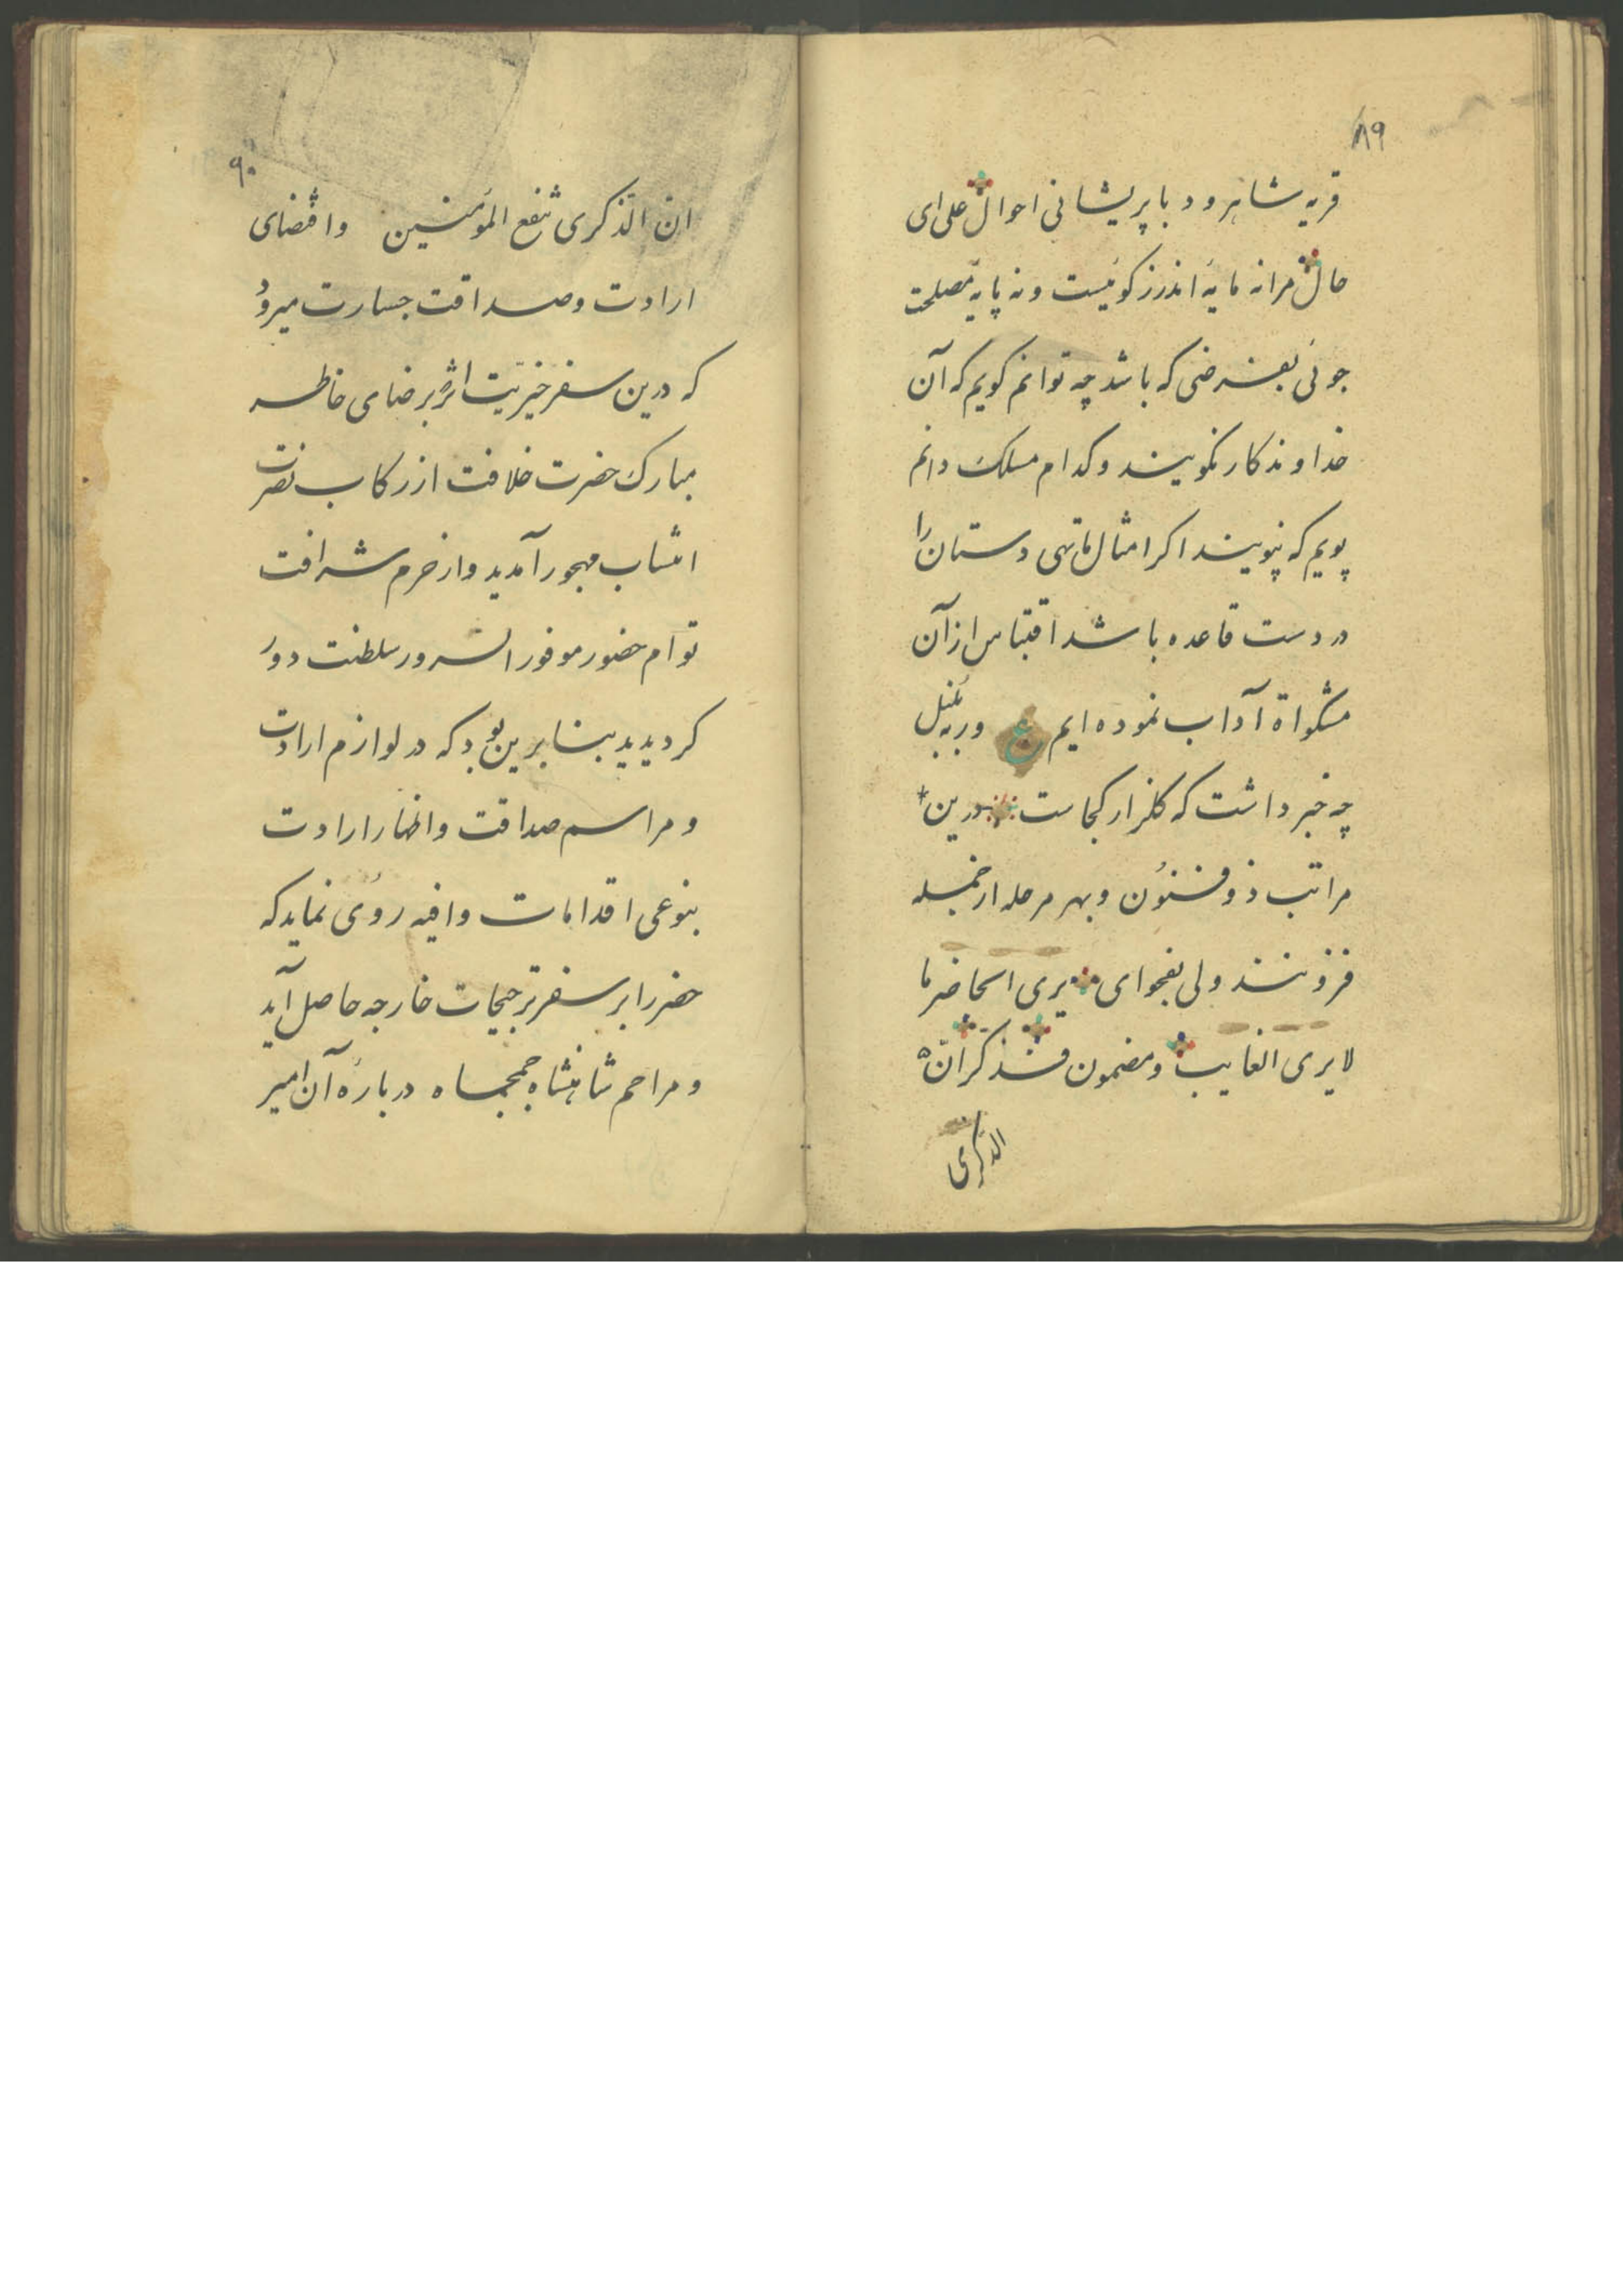 ۸۹
قریه شاهرود با پریشانی احوال علی ای
حال مرا نه مایهٔ اندرز کوئیست و نه پایهٔ مصلحت
جوئی بفرضی که باشد چه توانم کویم که آن
خداوندکار نکویند و کدام مسلک دانم
پویم که نپویند اکر امثال ما تهی دستان را
در دست قاعده باشد اقتباس از آن
مشکواة آداب نموده ایم ع ور نه بلبل
چه خبر داشت که کلزار کجاست درین
مراتب ذوفنون و بهر مرحله از جمله
فزونند ولی بفحوای یری الحاضر ما
لا یری الغایب و مضمون فذکر ان
الذکری
۹۰
ان الذکری تنفع المؤمنین واقتضای
ارادت و صداقت جسارت میرود
که درین سفر خیریت اثر بر رضای خاطر
مبارک حضرت خلافت از رکاب نصرت
انتساب مهجور آمدید و از حرم شرافت
توام حضور موفور السرور سلطنت دور
کردیدید بنا برین بود که در لوازم ارادت
و مراسم صداقت و اظهار ارادت
بنوعی اقدامات وافیه روی نماید که
حضر را بر سفر ترجیحات خارجه حاصل آید
و مراحم شاهنشاه جمجاه دربارهٔ آن امیر